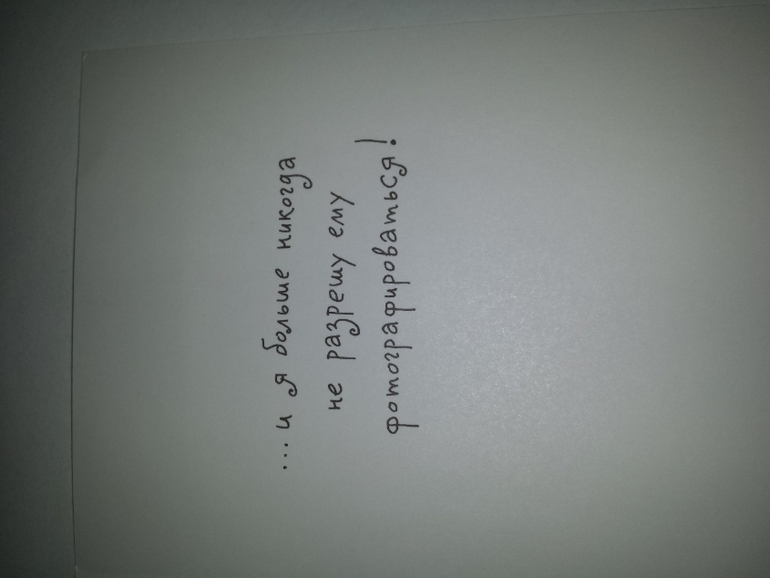 ...и я больше никогда
не разрешу ему
фотографироваться!